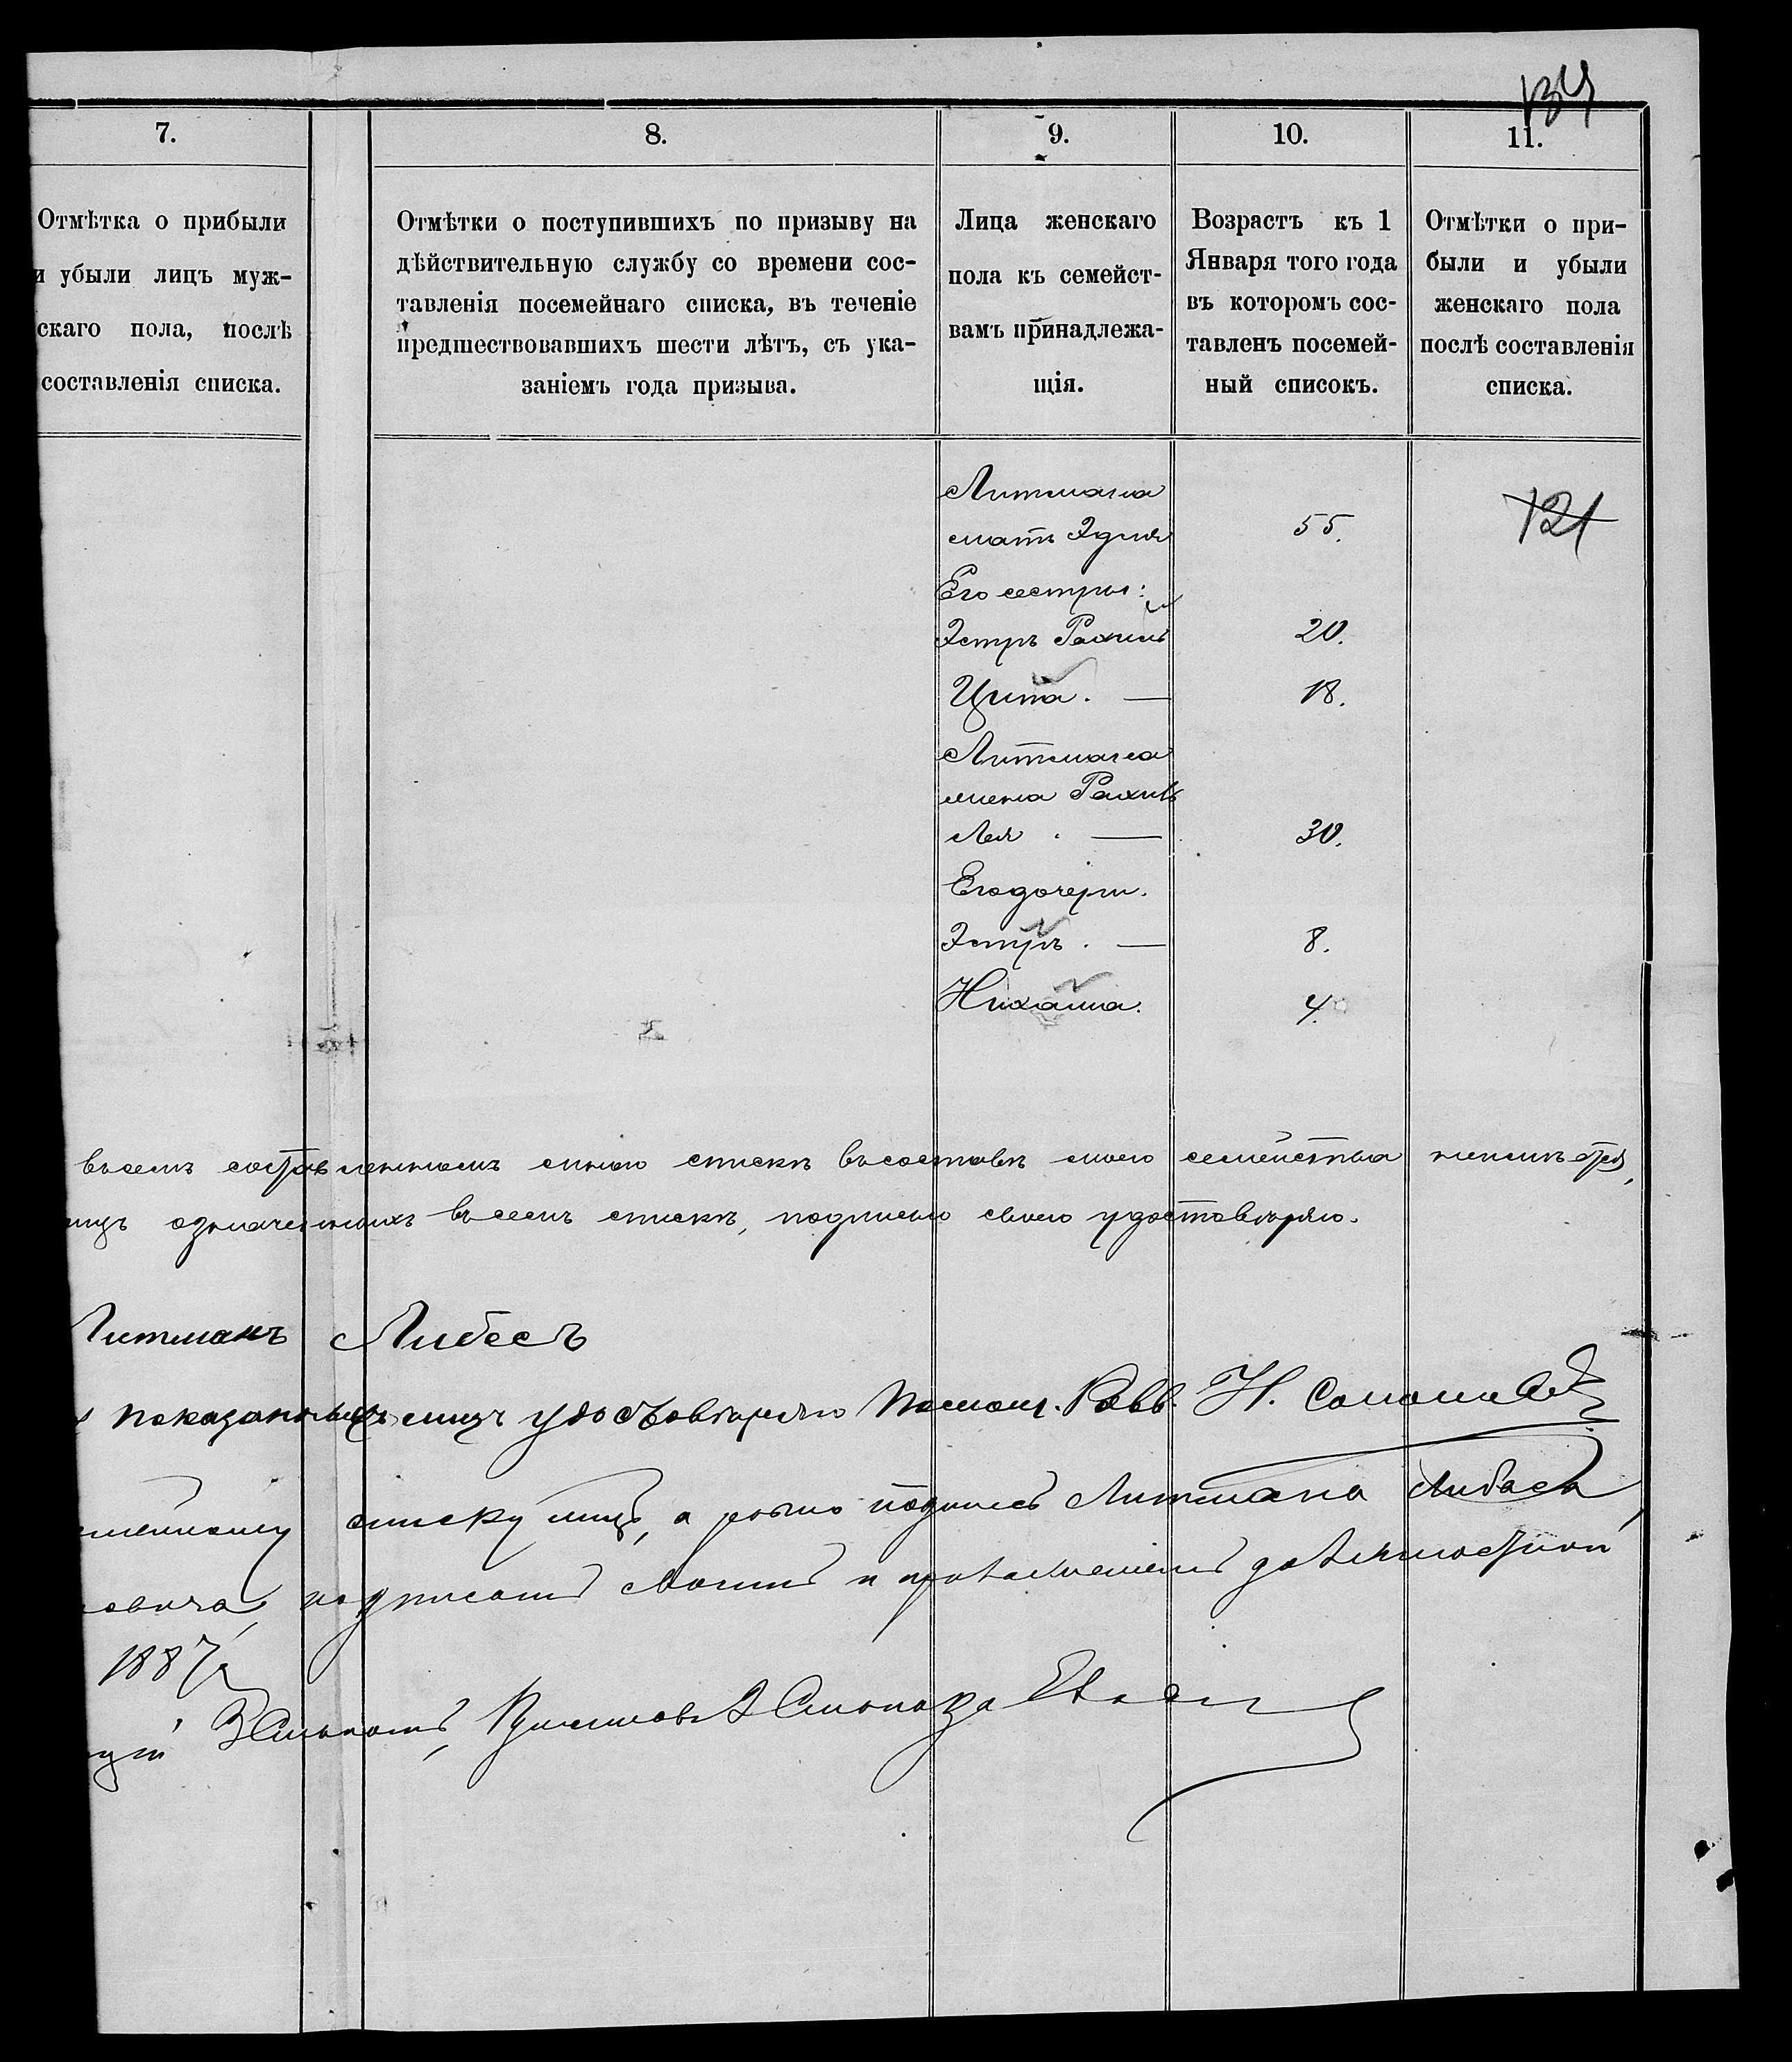 134
7.
8.
9.
10.
11.
Отмѣтка о прибыли
и убыли лицъ муж-
скаго пола, послѣ
составленія списка.
Отмѣтки о поступившихъ по призыву на
дѣйствительную службу со времени сос-
тавленія посемейнаго списка, въ теченіе
предшествовавшихъ шести лѣтъ, съ ука-
заніемъ года призыва.
Лица женскаго
пола къ семейст-
вамъ принадлежа-
щія.
Возрастъ къ 1
Января того года
въ которомъ сос-
тавленъ посемей-
ный списокъ.
Отмѣтки о при-
были и убыли
женскаго пола
послѣ составленія
списка.
Литмана
мать Эдля 55.
121
Его сестры:
Эстръ Рахиль 20.
Цита. — 18.
Литмана
жена Рахиль
Лея . — 30.
Его дочери.
Эстръ . — 8.
Нихама. 4.
въ семъ составленномъ мною спискѣ въ составѣ моего семейства
означенныхъ въ семъ спискѣ, подписью своею удостовѣряю.
Литманъ Либесъ
показанныхъ лицъ удостовѣряю Помощ. Равв. Н.
списку лицъ, а равно подпись Литмана Либеса,
подписомъ своимъ и приложеніемъ должностной
1887 г.